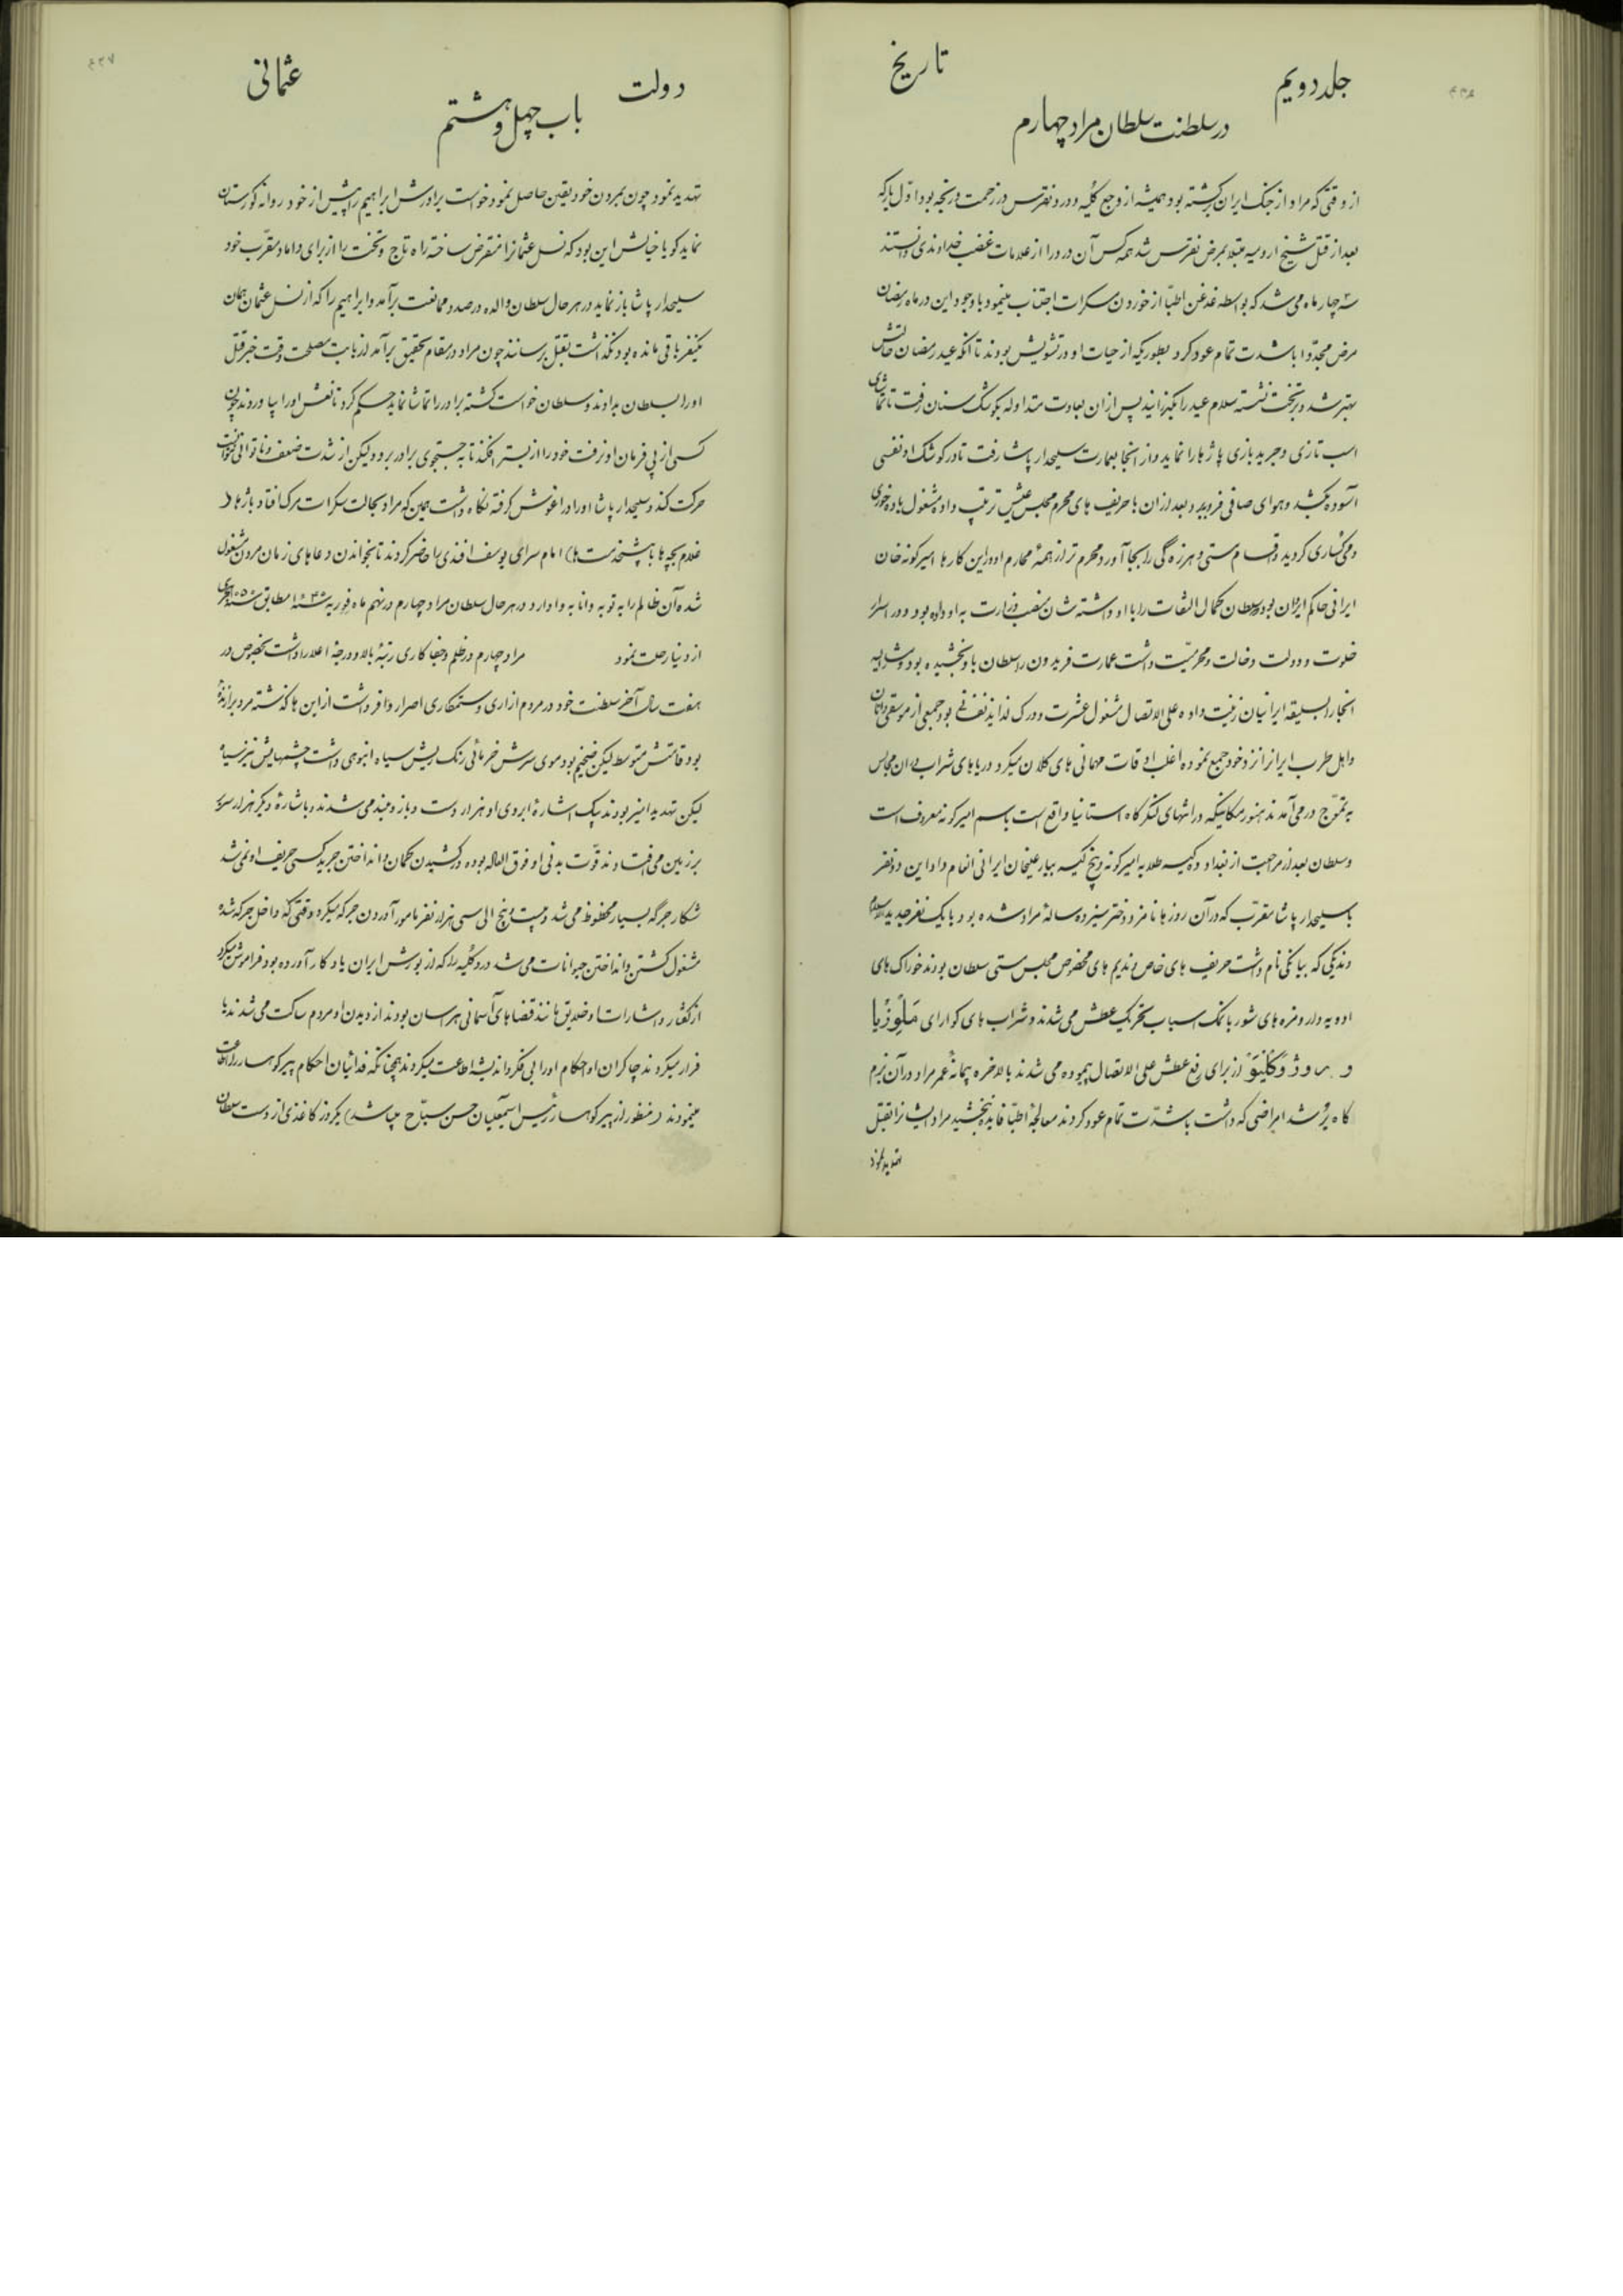 جلد دویم
تاریخ
در سلطنت سلطان مراد چهارم
از وقتی که مراد از جنک ایران برکشته بود همیشه از وجع کلیه و درد نقرس در زحمت و رنجه بود اول بار که
بعد از قتل شیخ ارومیه مبتلا بمرض نقرس شد همه کس آن درد را از علامات غضب خداوندی دانستند
سه چهار ماه می شد که بواسطه غدغن اطبا از خوردن مسکرات اجتناب مینمود با وجود این در ماه رمضان
مرض مجددا با شدت تمام عود کرد بطوریکه از حیات او در تشویش بودند تا آنکه عید رمضان حالتش
بهتر شد و بر تخت نشسته سلام عید را بکذرانید پس از آن بعادت متداوله بکوشک سنان رفت تا تماشای
اسب تازی و جرید بازی پاژها را نماید و از انجا بعمارت سلیحدار پاشا رفت تا در کوشک او نفسی
آسوده بکشد و هوای صافی فرو برد و بعد از ان با حریف های محرم مجلس عیش ترتیب داده مشغول باده خوری
و می کساری کردید و اقسام مستی و هرزه گی را بجا آورد محرم تر از همهٔ محارم او در این کارها امیر کونه خان
ایرانی حاکم ایروان بود و سلطان کمال التفات را با او داشته شان منصب وزارت به او داده بود و در اسرار
خلوت و دولت دخالت و محرمیت داشت عمارت فریدون را سلطان باو بخشیده بود و مشارالیه
انجا را بسلیقه ایرانیان زینت داده علی الاتصال مشغول عشرت و درک لذاید نفسانی بود جمعی از موسیقی دانان
و اهل طرب ایران را نزد خود جمع نموده اغلب اوقات مهمانی های کلان میکرد دریاهای شراب در ان مجالس
به تموج در می آمدند هنوز مکانیکه در انتهای لنکرکاه استانیا واقع است باسم امیر کونه معروف است
و سلطان بعد از مراجعت از بغداد ده کیسه طلا به امیر کونه و پنج کیسه بیار علیخان ایرانی انعام داد این دو نفر
با سلیحدار پاشا مقرب که در آن روزها نامزد دختر سیزده سالهٔ مراد شده بود با یک نفر جدید الاسلام
وندیکی که بیانکی نام داشت حریف های خاص و ندیم های مخصوص مجلس مستی سلطان بودند خوراک های
ادویه دار و مزه های شور با نمک اسباب تحریک عطش می شدند و شراب های کوارای ملوزیا
و بروژوکلیتو از برای رفع عطش علی الاتصال پیموده می شدند بالاخره پیمانهٔ عمر مراد در آن بزم
کاه پر شد امراضی که داشت با شدت تمام عود کردند معالجهٔ اطبا فایده نبخشید مراد ایشانرا بقتل
تهدید نمود
دولت
عثمانی
باب چهل و هشتم
تهدید نمود چون بمردن خود یقین حاصل نمود خواست برادرش ابراهیم را پیش از خود روانه کورستان
نماید کویا خیالش این بود که نسل عثمانرا منقرض ساخته راه تاج و تخت را از برای داماد مقرب خود
سلیحدار پاشا باز نماید در هر حال سلطان والده در صدد ممانعت برآمد و ابراهیم را که از نسل عثمان همان
یکنفر باقی مانده بود نکذاشت بقتل برسانند چون مراد در مقام تحقیق برآمد از بابت مصلحت وقت خبر قتل
او را بسلطان بدادند و سلطان خواست کشته برادر را تماشا نماید حکم کرد تا نعش او را بیاورند چون
کسی از پی فرمان او نرفت خود را از بستر افکند تا به جستجوی برادر برود ولیکن از شدت ضعف و ناتوانی نتوانست
حرکت کند و سلیحدار پاشا او را در اغوش کرفته نکاه داشت همین که مراد بحالت سکرات مرک افتاد پاژها (
غلام بچه ها یا پیشخدمت ها) امام سرای یوسف افندی را حاضر کردند تا بخواندن دعاهای زمان مردن مشغول
شده آن ظالم را به توبه و انابه وادارد در هر حال سلطان مراد چهارم در نهم ماه فوریه سنهٔ ۱۶۴۰ مطابق سنهٔ ۱۰۵۰ هجری
از دنیا رحلت نمود مراد چهارم در ظلم و جفا کاری رتبهٔ بالا و درجهٔ اعلا را داشت بخصوص در
هفت سال آخر سلطنت خود در مردم ازاری و ستمکاری اصرار وافر داشت از این ها کذشته مرد برازندهٔ
بود قامتش متوسط لیکن ضخیم بود موی سرش خرمائی رنک ریش سیاه انبوهی داشت چشمهایش نیز سیاه
لیکن تهدید امیز بودند بیک اشارهٔ ابروی او هزار دست و بازو بلند می شدند و باشارهٔ دیکر هزار سر
بر زمین می افتادند قوت بدنی او فوق العاده بوده در کشیدن کمان و انداختن جرید کسی حریف او نمی شد
شکار جرگه بسیار محظوظ می شد و بیست و پنج الی سی هزار نفر مامور آوردن جرکه میکرد وقتی که داخل جرکه شده
مشغول کشتن و انداختن حیوانات می شد درد کلیه را که از یورش ایران یادکار آورده بود فراموش میکرد
از کفتار و اشارات او خلایق مانند قضاهای آسمانی هراسان بودند از دیدن او مردم ساکت می شدند یا
فرار میکردند چاکران او احکام او را بی فکر و اندیشه اطاعت میکردند همچنانکه فدائیان احکام پیر کوهسار را اطاعت
مینمودند (منظور از پیر کوهسار رئیس اسمعیلیان حسن سباح میباشد) یکروز کاغذی از دست سلطان